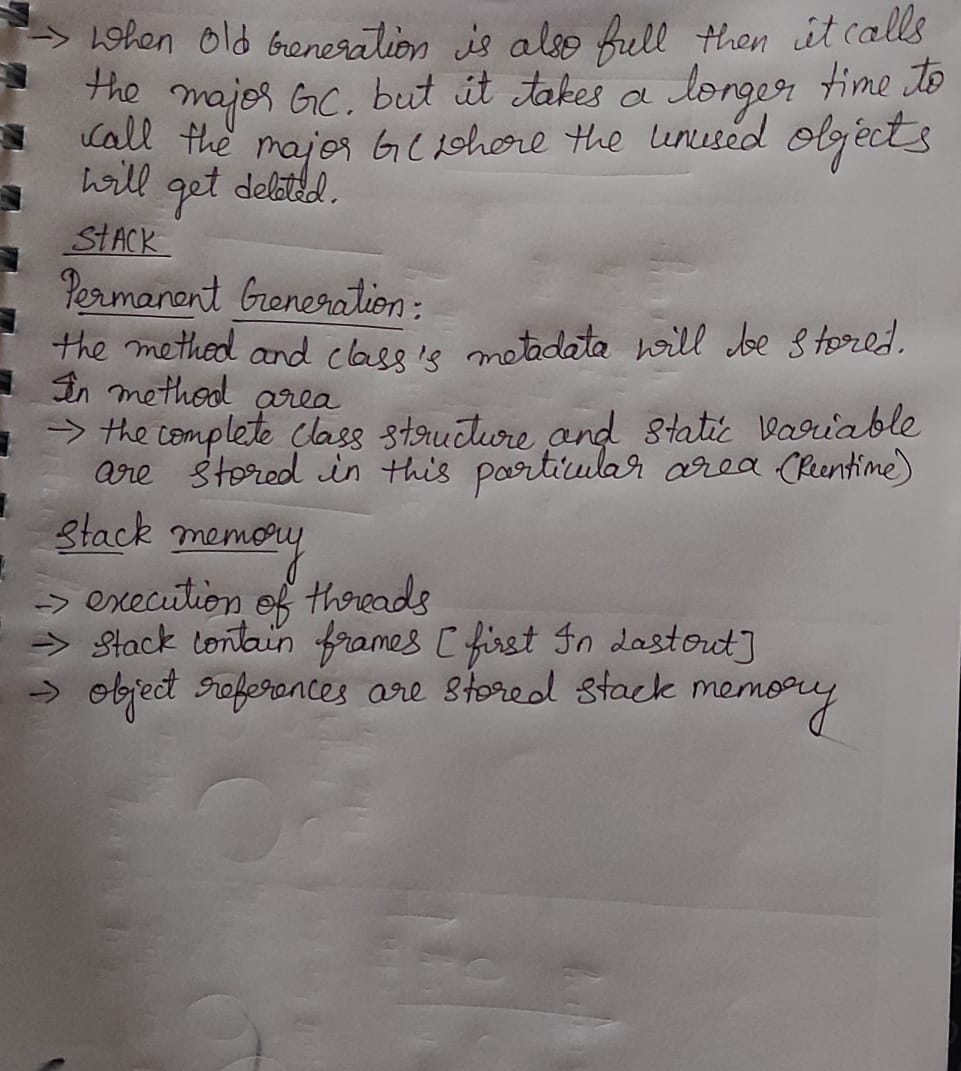 → When Old Generation is also full then it calls
the major GC. but it takes a longer time to
call the major GC where the unused objects
will get deleted.
STACK
Permanent Generation:
the method and class's metadata will be stored.
In method area
→ the complete class structure and static variable
are stored in this particular area (Runtime)
Stack memory
→ execution of threads
→ Stack contain frames [first In Last out]
→ object references are stored stack memory